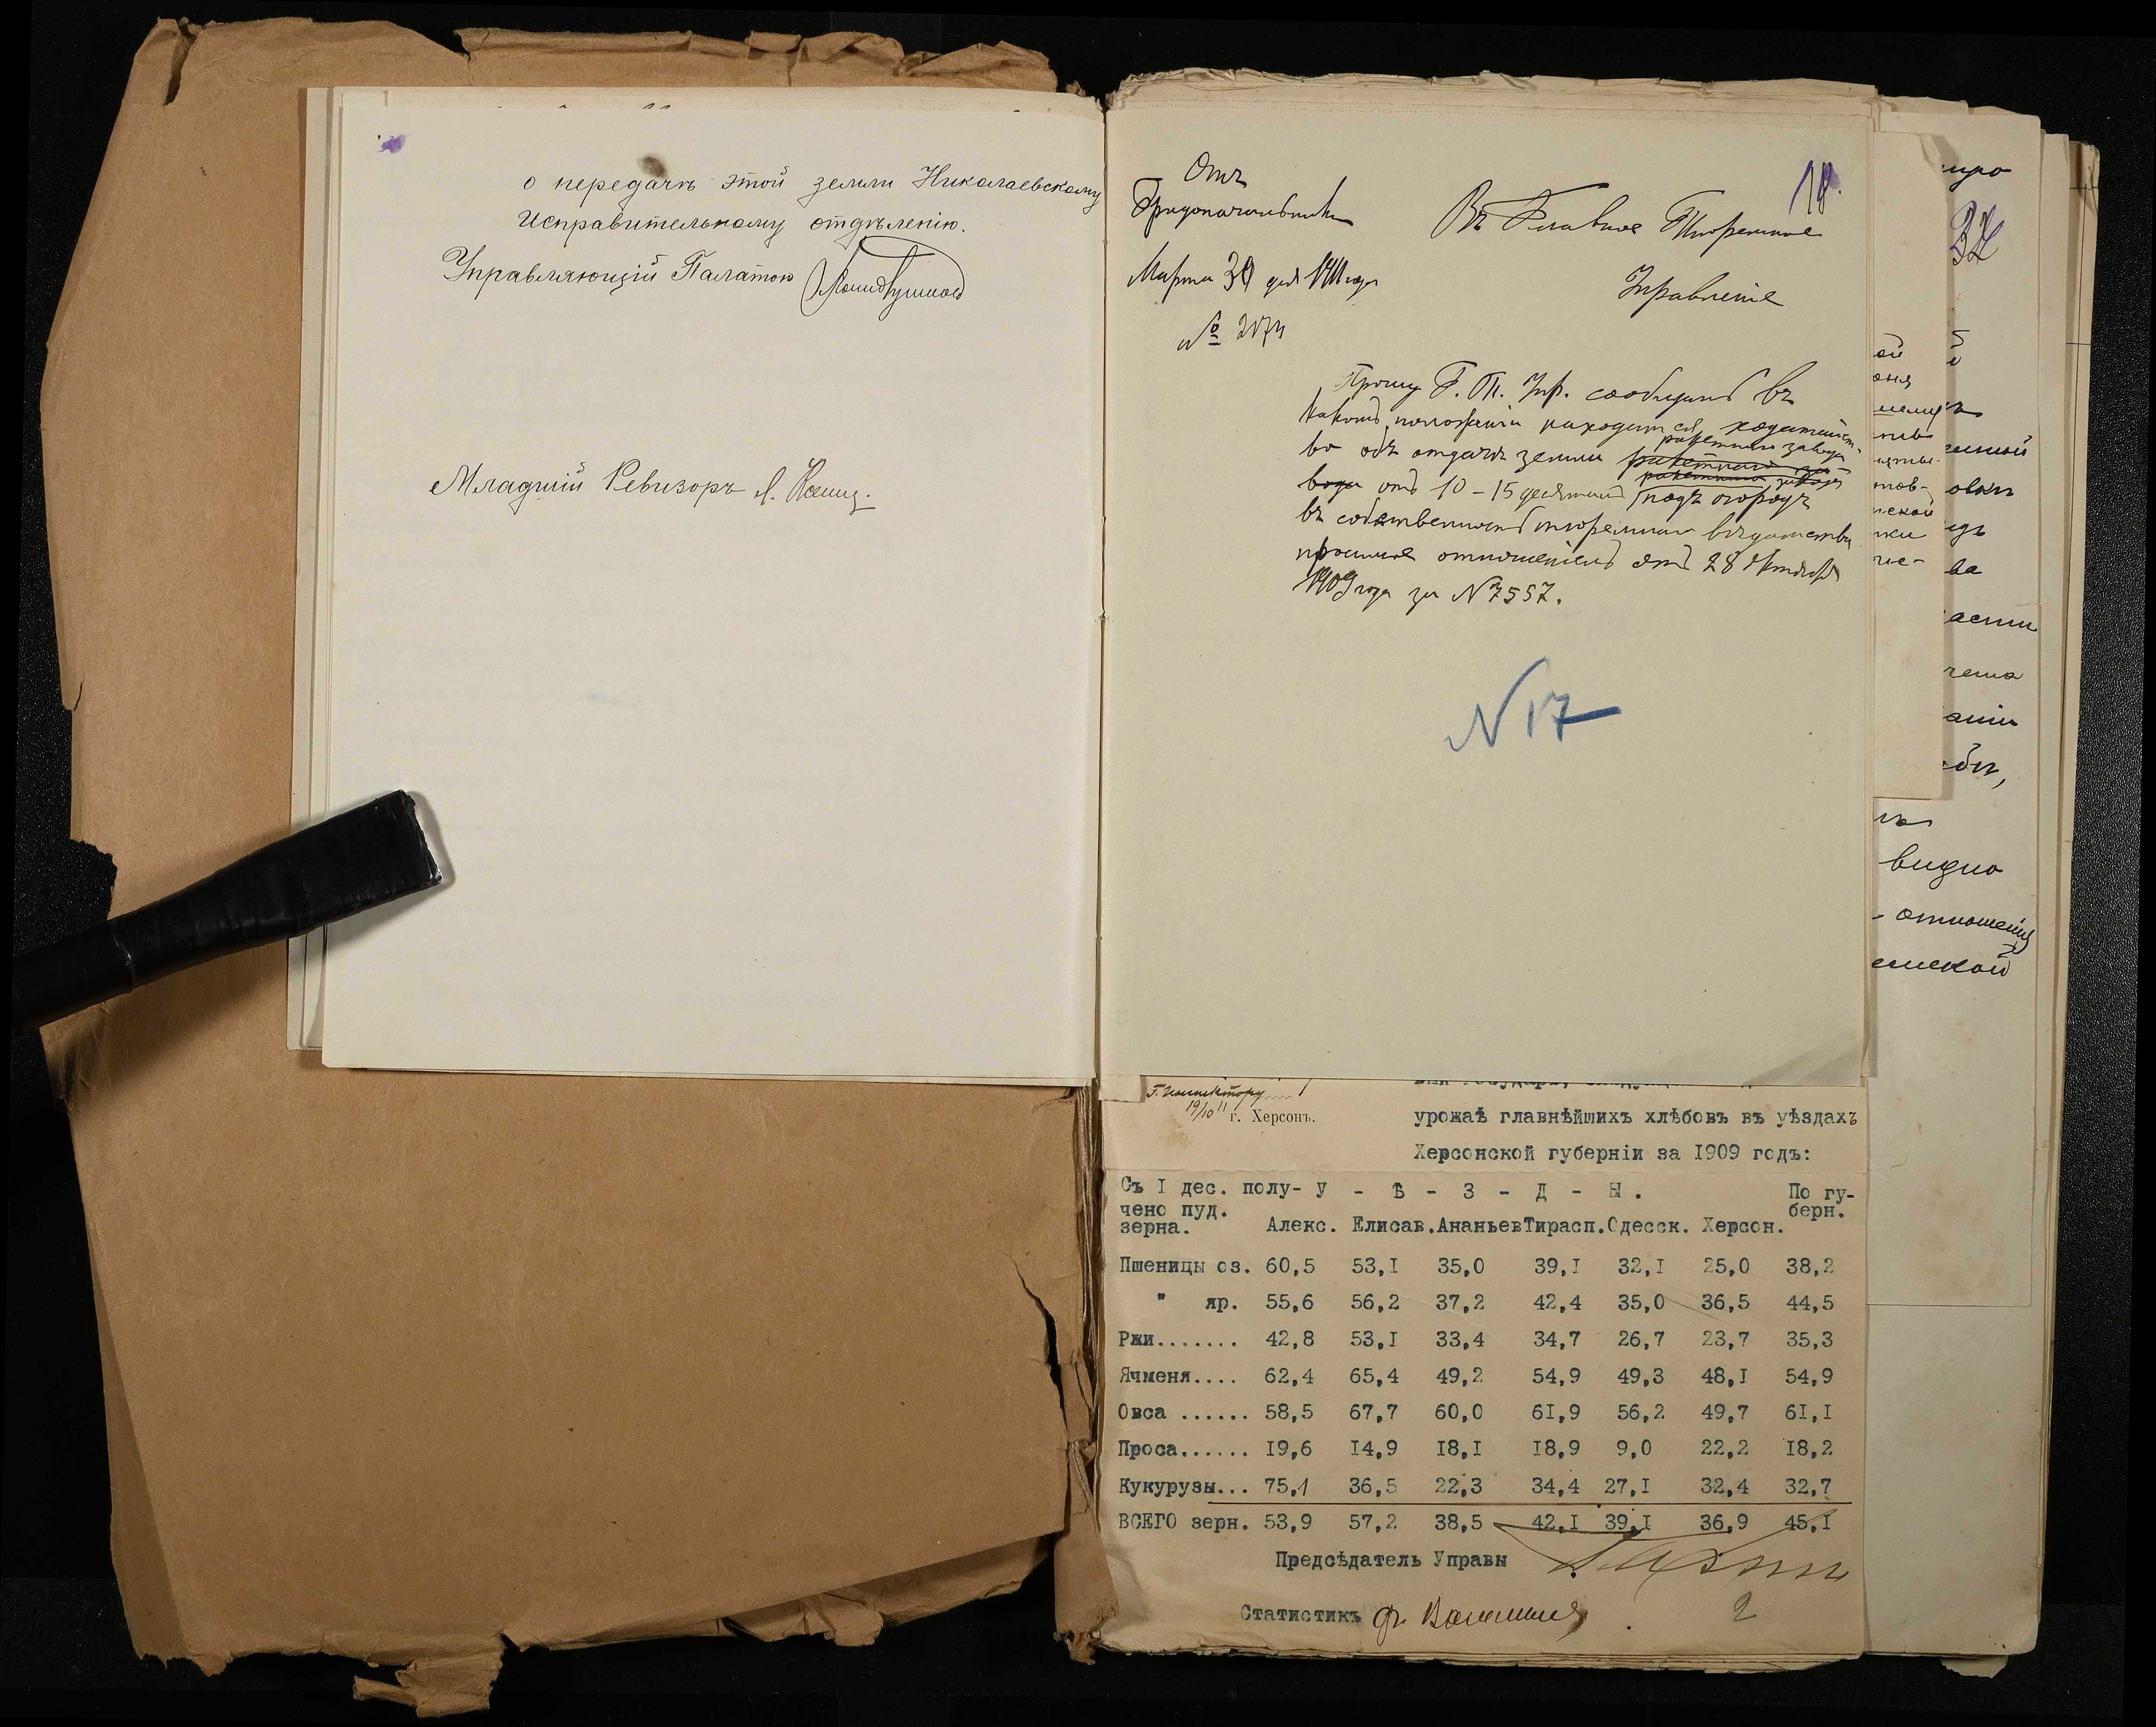 о передачѣ этой земли Николаевскому
Исправительному отдѣленію.
Управляющій Палатою
Младшій Ревизоръ
18.
Отъ
Градоначальника
Марта 30 дня 1911 года
№ 2174
Въ Главное Тюремное
Управленіе
Прошу Г. Т. Упр. сообщить въ
какомъ положеніи находится ходатайст-
ракетнаго завода
во объ отдачѣ земли ракетнаго за-
ракетнаго завода
вода отъ 10-15 десятинъ подъ огородъ
въ собственность тюремнаго вѣдомства
прошлое отношеніемъ отъ 28 Октября
1909 года за № 7557.
N 17
Г. Инспектору
19/10 11 г. Херсонъ.
урожаѣ главнѣйшихъ хлѣбовъ въ уѣздахъ
Херсонской губерніи за I909 годъ:
Съ I дес. полу- У - Ѣ - З - Д - Ы. По гу-
чено пуд. берн.
зерна. Алекс. Елисав. Ананьев Тирасп. Одесск. Херсон.
Пшеницы оз. 60,5 53,I 35,0 39,I 32,I 25,0 38,2
" яр. 55,6 56,2 37,2 42,4 35,0 36,5 44,5
Ржи....... 42,8 53,I 33,4 34,7 26,7 23,7 35,3
Ячменя.... 62,4 65,4 49,2 54,9 49,3 48,I 54,9
Овса ...... 58,5 67,7 60,0 6I,9 56,2 49,7 6I,I
Проса...... I9,6 I4,9 I8,I I8,9 9,0 22,2 I8,2
Кукурузы... 75,1 36,5 22,3 34,4 27,I 32,4 32,7
ВСЕГО зерн. 53,9 57,2 38,5 42,I 39,I 36,9 45,I
Предсѣдатель Управы
Статистикъ
2
видно
отношенія